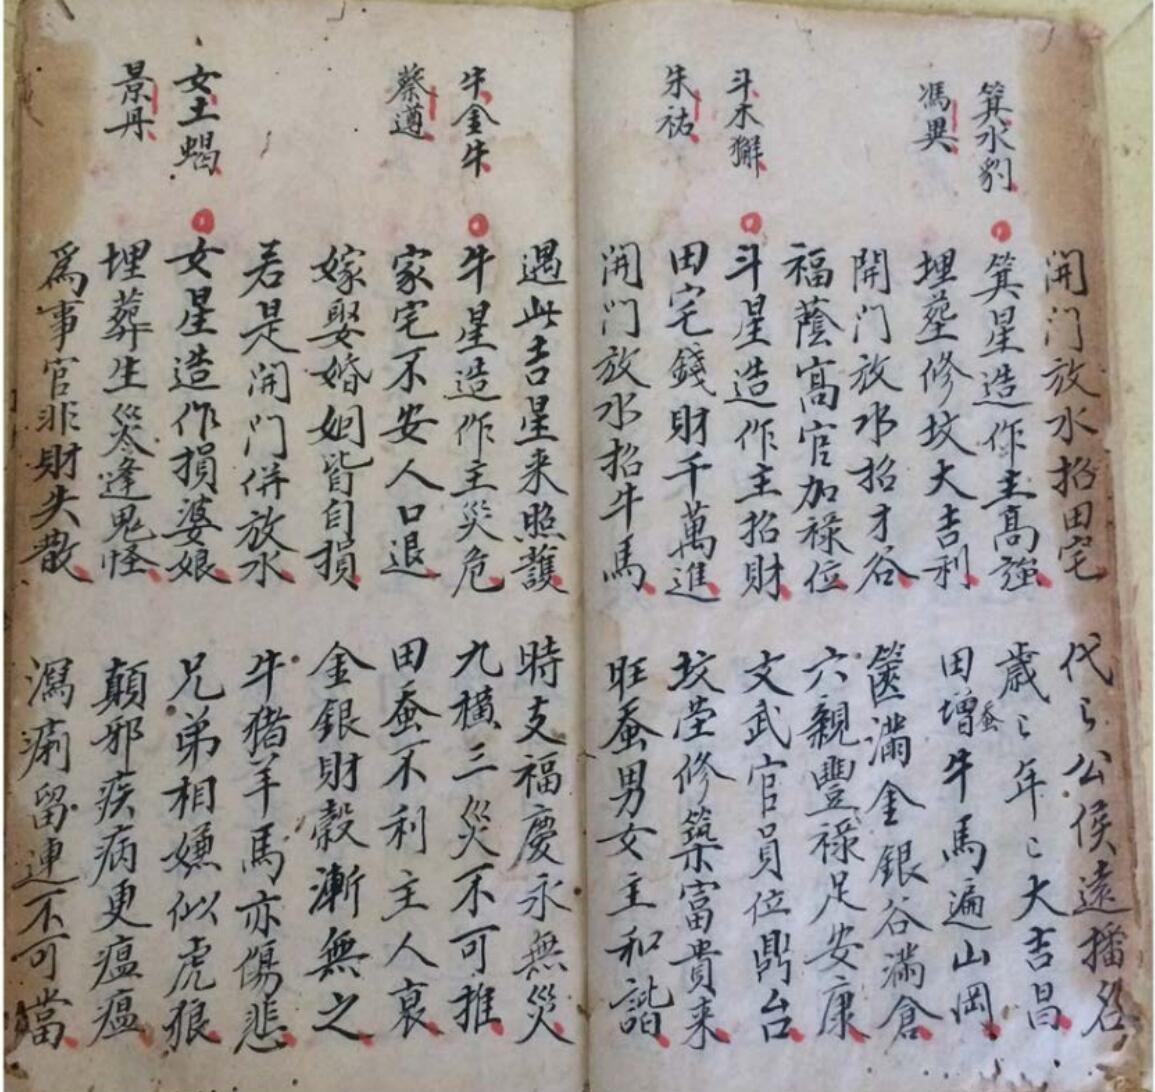 開門放水招田宅 代〻公侯遠播名
箕水豹
馮異
箕星造作主高強 歳〻年〻大吉昌
埋塟修坟大吉利 田蚕增牛馬遍山岡
開門放水招才谷 篋滿金銀谷滿倉
福蔭高官加祿位 六親豐祿足安康
斗木獬
朱祐
斗星造作主招財 文武官員位鼎台
田宅錢財千萬進 坟塋修築富貴来
開門放水招牛馬 旺蚕男女主和諧
遇此吉星来照護 時支福慶永無災
牛金牛
蔡遵
牛星造作主災危 九橫三災不可推
家宅不安人口退 田蚕不利主人衰
嫁娶婚姻皆自損 金銀財穀漸無之
若是開門併放水 牛猪羊馬亦傷悲
女土蝎
景丹
女星造作損婆娘 兄弟相嫌似虎狼
埋葬生災逢鬼怪 顛邪疾病更瘟瘟
爲事官非財失散 瀉痢留連不可當